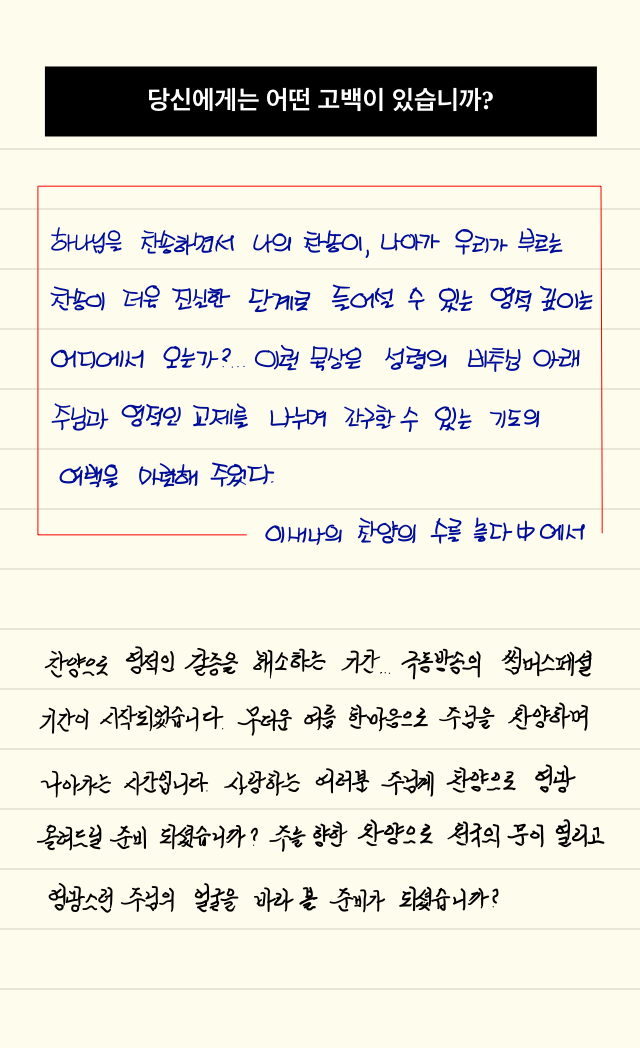 당신에게는 어떤 고백이 있습니까?
하나님을 찬송하면서 나의 찬송이, 나아가 우리가 부르는
찬송이 더욱 진실한 단계로 들어설 수 있는 영적 깊이는
어디에서 오는가?... 이런 묵상은 성령의 비추심 아래
주님과 영적인 교제를 나누며 간구할 수 있는 기도의
여백을 마련해 주었다.
이내나의 찬양의 수를 놓다 中에서
찬양으로 영적인 갈증을 해소하는 시간... 극동방송의 썸머스페셜
기간이 시작되었습니다. 무더운 여름 한마음으로 주님을 찬양하며
나아가는 시간입니다. 사랑하는 여러분 주님께 찬양으로 영광
올려드릴 준비 되셨습니까? 주를 향한 찬양으로 천국의 문이 열리고
영광스런 주님의 얼굴을 바라 볼 준비가 되셨습니까?